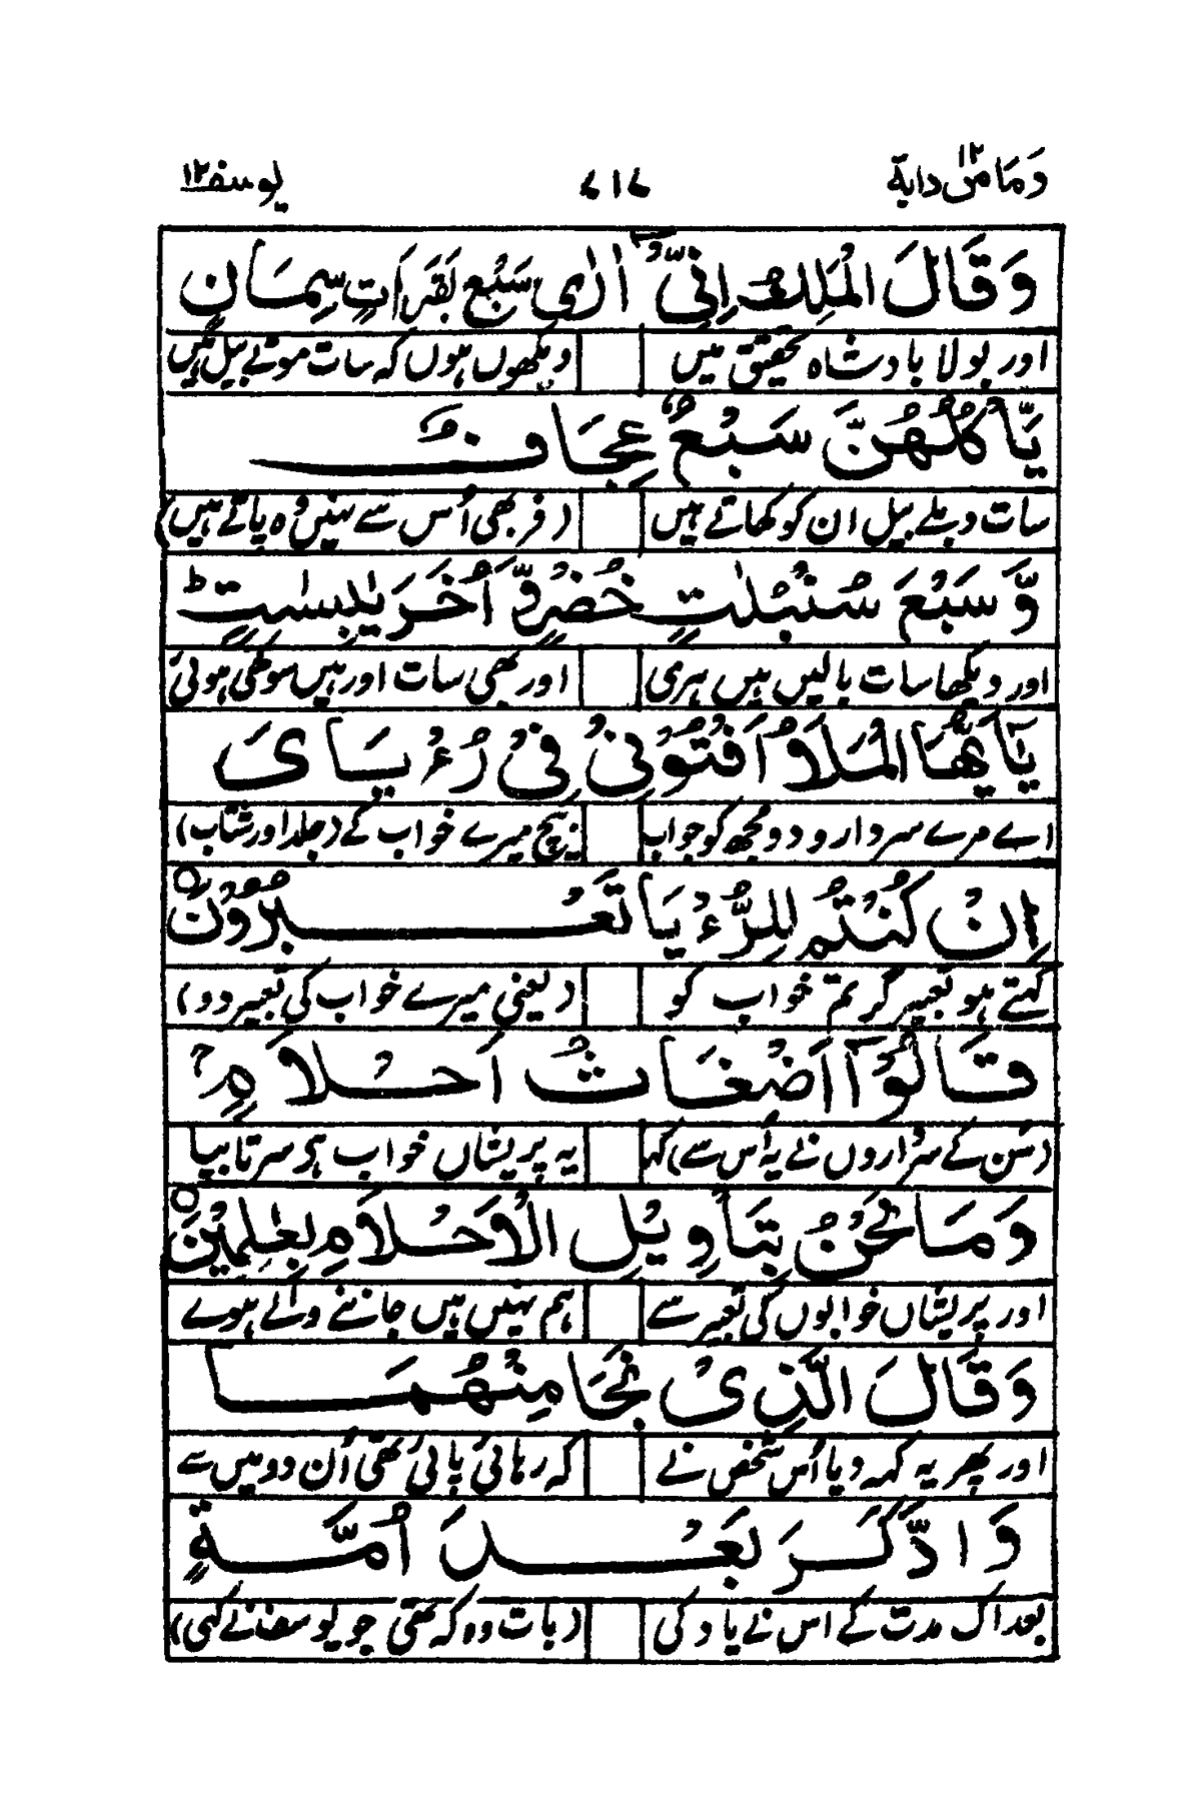 وما من دابة ۱۲ ۷۱۷ یوسف ۱۲
وَقَالَ الْمَلِكُ اِنِّیْۤ اَرٰی سَبْعَ بَقَرَاتٍ سِمَانٍ
اور بولا بادشاہ تحقیق میں دیکھوں ہوں کہ سات موٹے بیل ہیں
یَّاْكُلُهُنَّ سَبْعٌ عِجَافٌ
سات دبلے بیل ان کو کھاتے ہیں (فربھی اُس سے نہیں وہ پاتے ہیں)
وَّ سَبْعَ سُنْۢبُلٰتٍ خُضْرٍ وَّ اُخَرَ یٰبِسٰتٍ ؕ
اور دیکھا سات بالیں ہیں ہری اور بھی سات اور ہیں سوکھی ہوئی
یٰۤاَیُّهَا الْمَلَاُ اَفْتُوْنِیْ فِیْ رُءْیَایَ
اے مرے سردارو دو مجھ کو جواب بیچ میرے خواب کے (جلد اور شتاب)
اِنْ كُنْتُمْ لِلرُّءْیَا تَعْبُرُوْنَ ○
کہتے ہو تعبیر گر تم خواب کو (یعنی میرے خواب کی تعبیر دو)
قَالُوْۤا اَضْغَاثُ اَحْلَامٍ ۚ
(سُن کے سرداروں نے یہ اُس سے) کہا یہ پریشاں خواب ہے سرتا بپا
وَ مَا نَحْنُ بِتَاْوِیْلِ الْاَحْلَامِ بِعٰلِمِیْنَ ○
اور پریشاں خوابوں کی تعبیر سے ہم نہیں ہیں جاننے والے ہوے
وَ قَالَ الَّذِیْ نَجَا مِنْهُمَا
اور پھر یہ کہہ دیا اُس شخص نے کہ رہائی پائی تھی اُن دو میں سے
وَ ادَّكَرَ بَعْدَ اُمَّةٍ
بعد اک مدت کے اس نے یاد کی (بات وہ کہ تھی جو یوسف نے کہی)